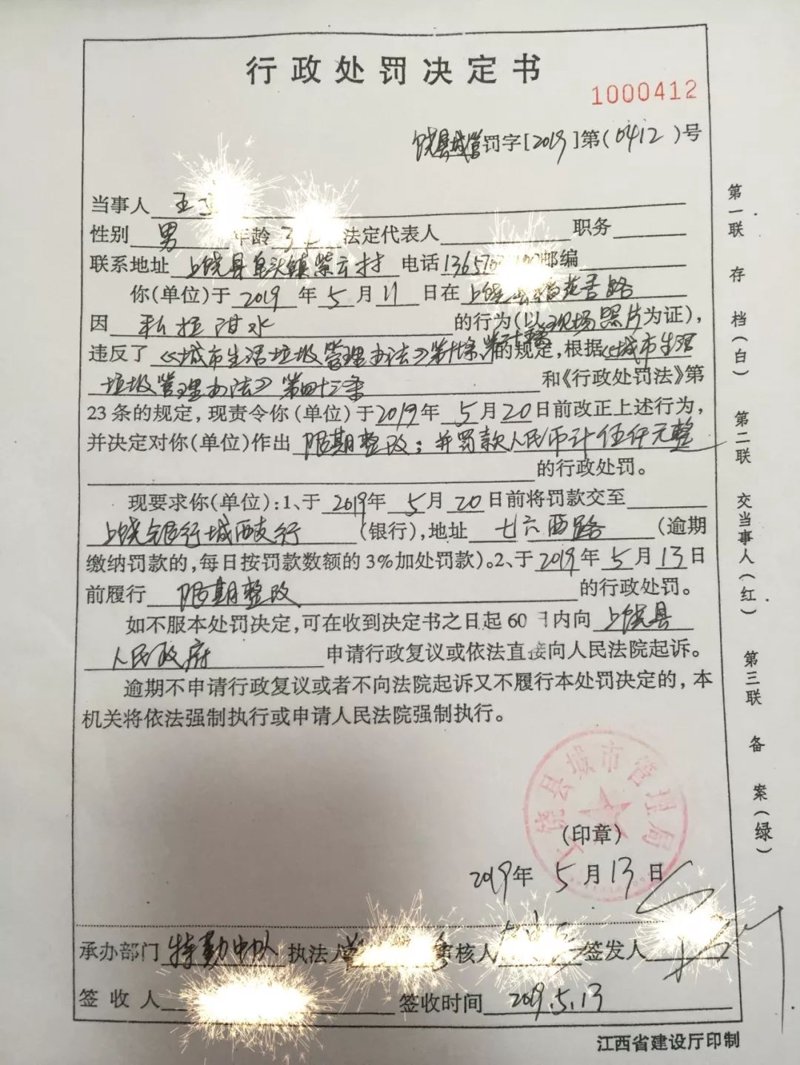 行政处罚决定书
1000412
饶县城管罚字[2019]第(0412)号
当事人 王
性别 男 年龄 3 法定代表人 职务
联系地址 上饶县皂头镇紫云村 电话 1365 邮编
你(单位)于 2019 年 5 月 11 日在 上饶 路
因 私拉泔水 的行为(以 现场照片 为证),
违反了《城市生活垃圾管理办法》第 条 的规定,根据《城市生活
垃圾管理办法》第四十三条 和《行政处罚法》第
23 条的规定,现责令你(单位)于2019年 5 月20日前改正上述行为,
并决定对你(单位)作出 限期整改;并罚款人民币计伍仟元整
的行政处罚。
现要求你(单位):1、于 2019年 5 月 20 日前将罚款交至
上饶银行城西支行 (银行),地址 七六西路 (逾期
缴纳罚款的,每日按罚款数额的 3%加处罚款)。2、于 2019年 5 月 13 日
前履行 限期整改 的行政处罚。
如不服本处罚决定,可在收到决定书之日起 60 日内向 上饶县
人民政府 申请行政复议或依法直接向人民法院起诉。
逾期不申请行政复议或者不向法院起诉又不履行本处罚决定的,本
机关将依法强制执行或申请人民法院强制执行。
上饶县城市管理局
(印章)
2019年 5 月 13 日
承办部门 特勤中队 执法人 审核人 签发人
签收人 签收时间 2019.5.13
江西省建设厅印制
第一联 存档(白) 第二联 交当事人(红) 第三联 备案(绿)